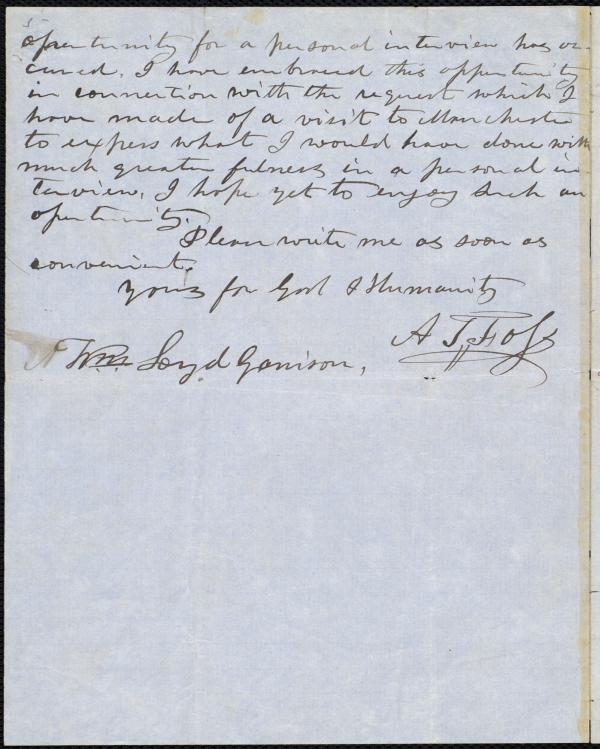 opertunity for a personal interview has oc-
cured. I have embraced this oppertunity
in connection with the request which I
have made of a visit to Manchester
to express what I would have done with
much greater fulness in a personal in-
terview. I hope yet to enjoy such an
opertunity.
Please write me as soon as
convenient.
Yours for God & Humanity
A T Foss
Wm. Loyd Garrison,